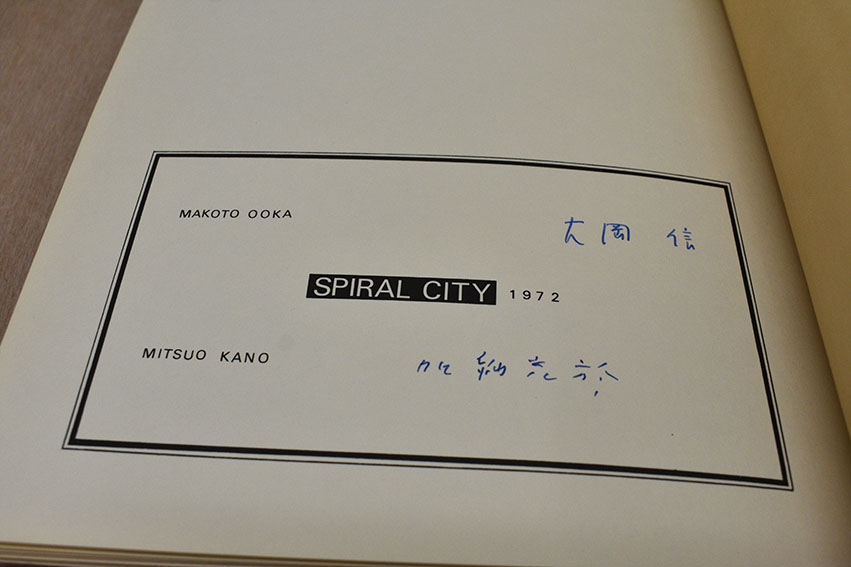 MAKOTO OOKA
大岡 信
SPIRAL CITY 1972
MITSUO KANO
加納光於